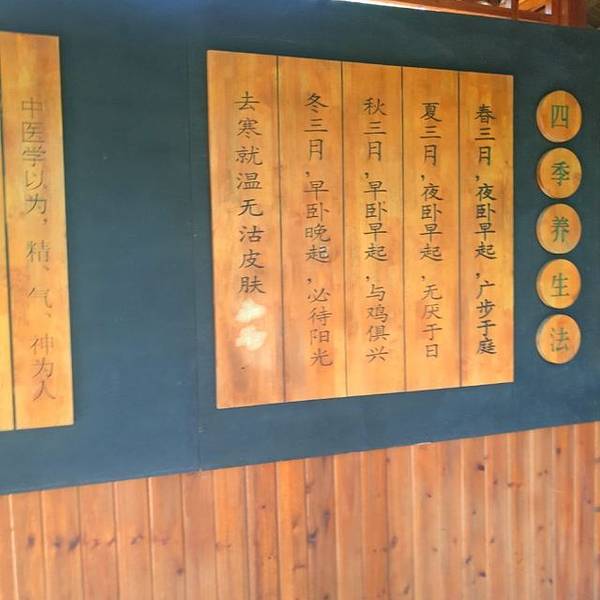 四季养生法
春三月,夜卧早起,广步于庭
夏三月,夜卧早起,无厌于日
秋三月,早卧早起,与鸡俱兴
冬三月,早卧晚起,必待阳光
去寒就温无沽皮肤
中医学以为,精、气、神为人